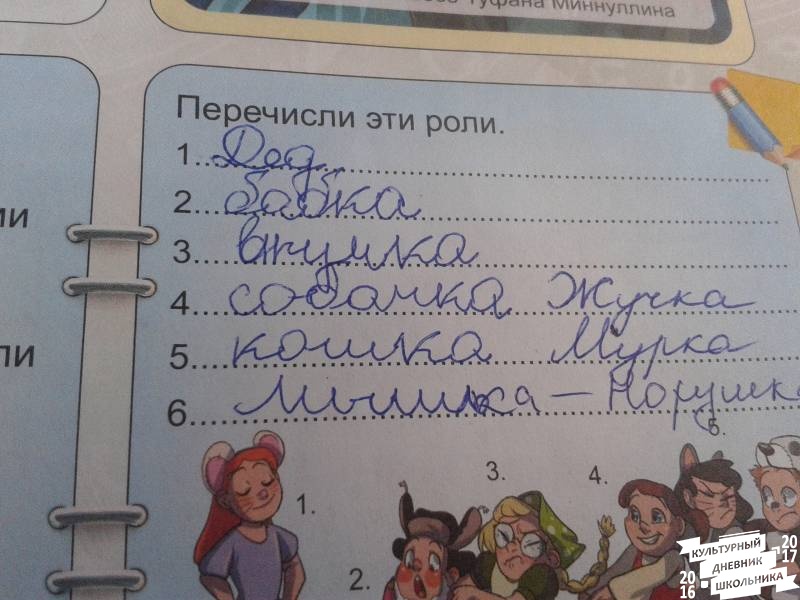 Туфана Миннуллина
Перечисли эти роли.
1. Дед
2. бабка
3. внучка
4. собачка Жучка
5. кошка Мурка
6. Мышка – Норушка
ми
ли
1.
2.
3.
4.
5.
КУЛЬТУРНЫЙ
ДНЕВНИК
ШКОЛЬНИКА
2016
2017